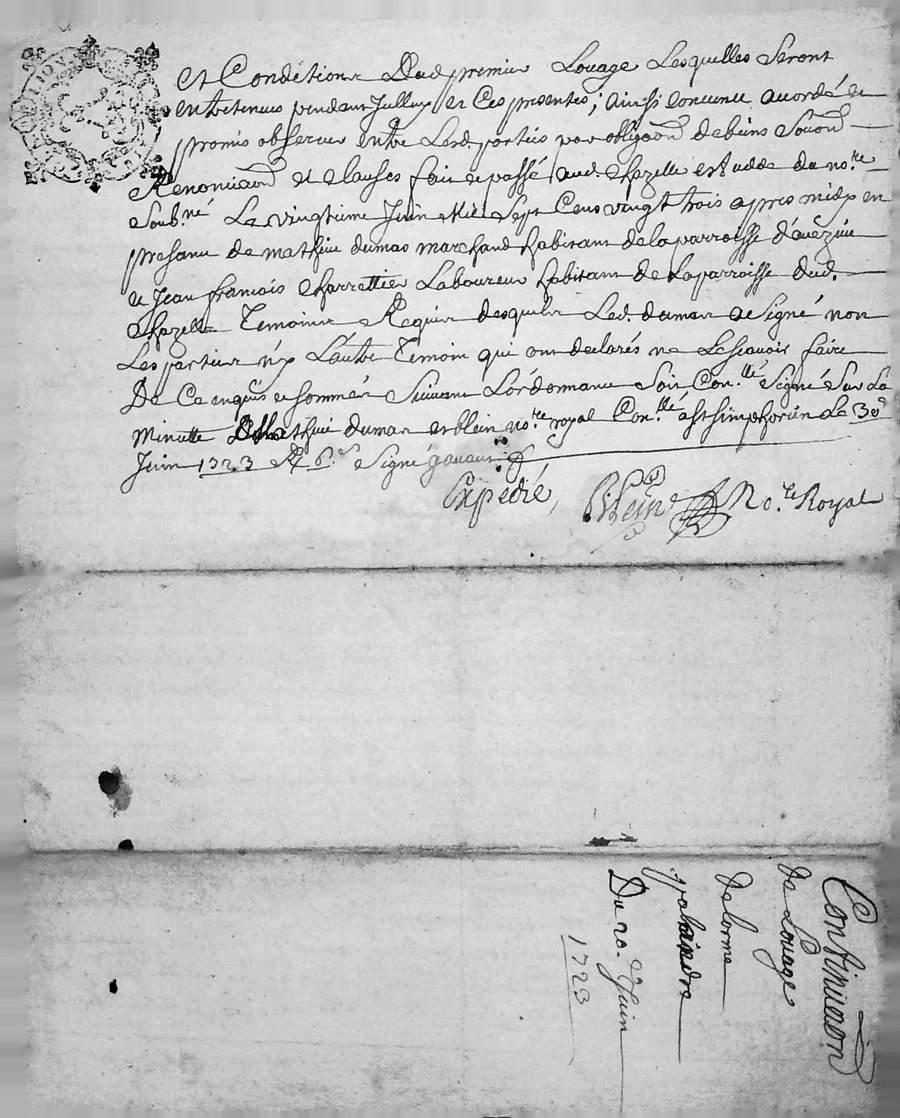 et Conditions Dud premier Louage Lesquelles Seront
entretenues pendant Icelluy et Ces presentes; ainsi Convenu accordé et
promis observer entre Lesd. parties par obligaon de biens Soumon
Renontiaon et Clauses fait et passé aud. Chazelle estude du no.re
Soub.né Le vingtieme Juin Mil Sept Cens vingt trois apres midy en
presance de mathieu dumas marchand habitant de la parroisse d'avézieu
et Jean francois Charrettier Laboureur habitant de La parroisse dud.
Chazelle Temoins Requis desquels Led. dumas a Signé non
Les parties ny L'autre Temoin qui ont declarés ne Le Scavoir faire
De Ce enquis et sommés Suivant L'ordonnance Soit Con.llé Signé Sur La
minutte Mathieu dumas et blein no.re royal Con.llé a St Simphorien Le 30e
Juin 1723 R 6.s Signé
Expedié, Blein No.re Royal
Continuaon
de Louage
delorme
Du 20.e Juin
1723